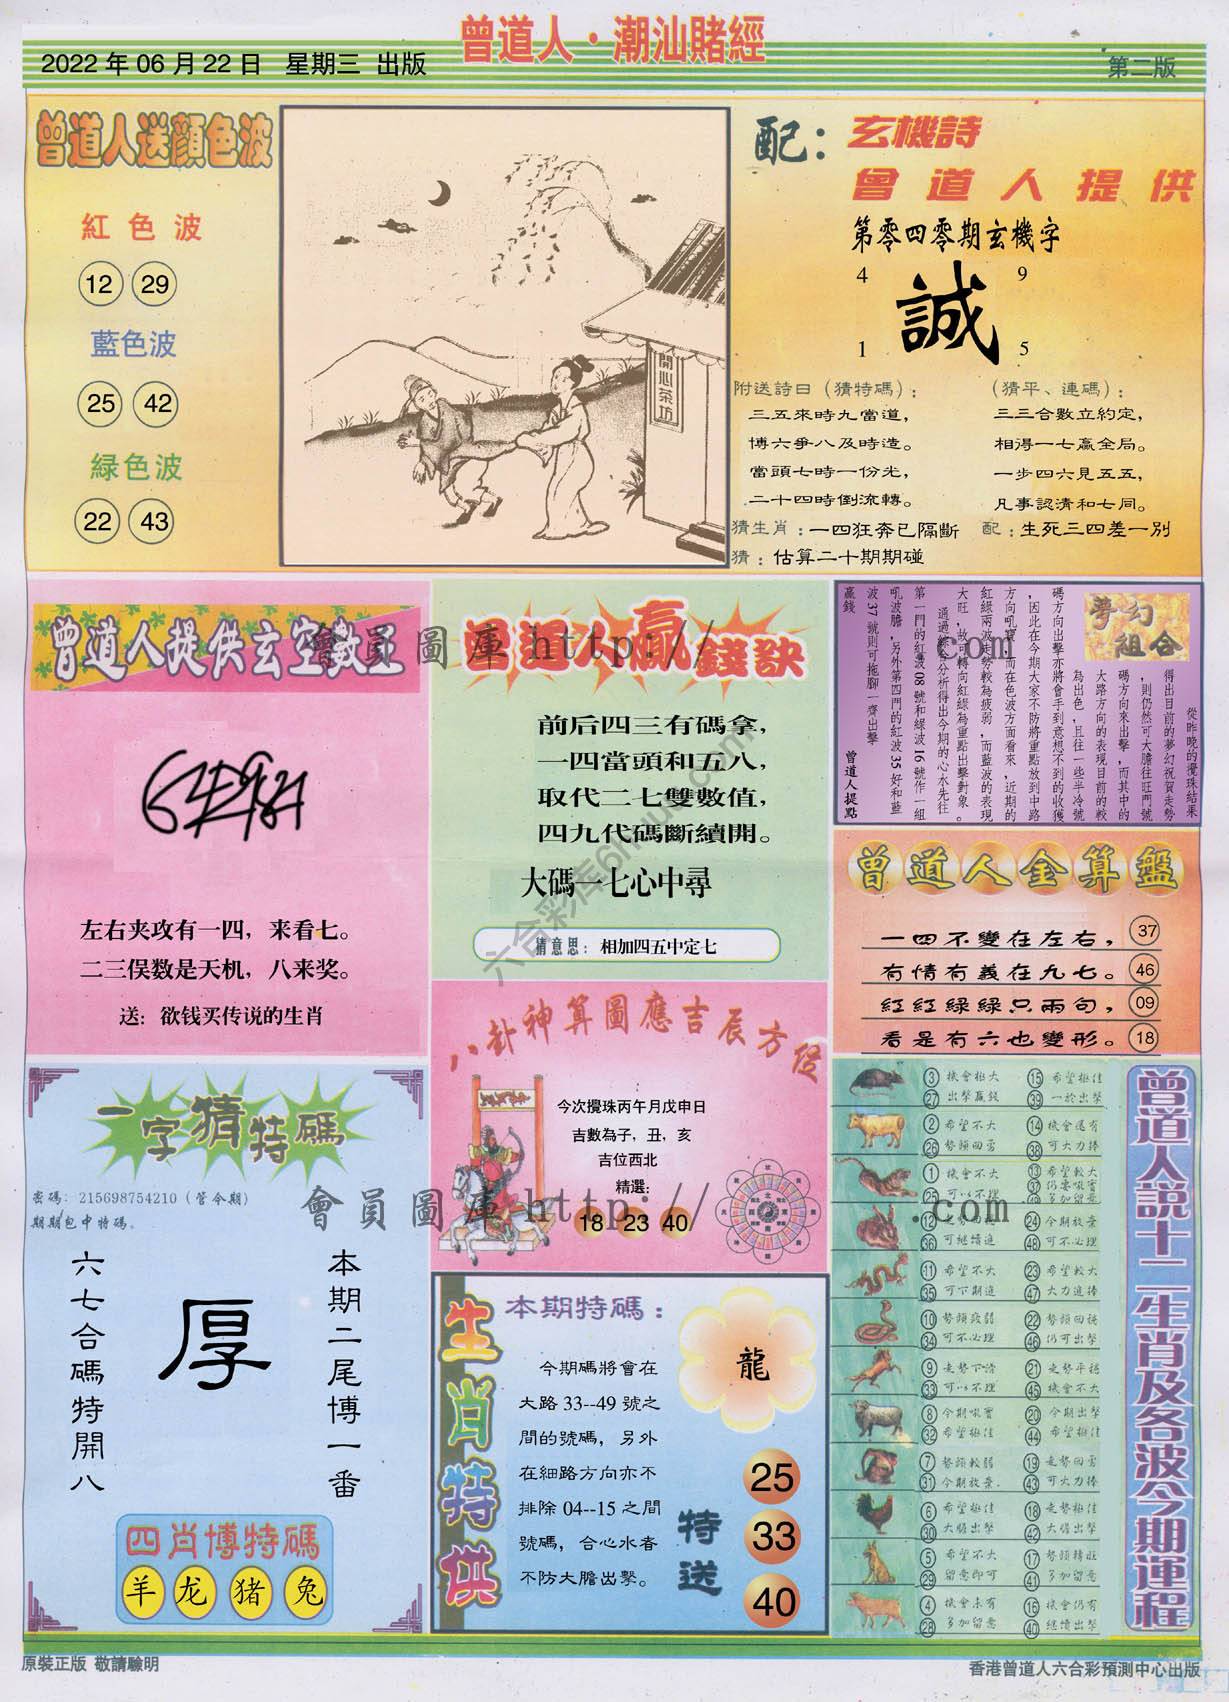 曾道人·潮汕賭經
2022 年 06 月 22 日 星期三 出版
第二版
曾道人送顔色波
紅色波
12 29
藍色波
25 42
緑色波
22 43
開心茶坊
配：
玄機詩
曾道人提供
第零四零期玄機字
4 9
誠
1 5
附送詩日（猜特碼）：
三五來時九當道，
博六爭八及時造。
當頭七時一份光，
二十四時倒流轉。
（猜平、連碼）：
三三合數立約定，
相得一七贏全局。
一步四六見五五，
凡事認清和七同。
猜生肖：一四狂奔已隔斷
配：生死三四差一別
猜：估算二十期期碰
曾道人提供玄空數王
左右夹攻有一四，来看七。
二三俣数是天机，八来奖。
送：欲钱买传说的生肖
曾道人贏錢訣
前后四三有碼拿，
一四當頭和五八，
取代二七雙數值，
四九代碼斷續開。
大碼一七心中尋
猜意思：相加四五中定七
夢幻
組合
從昨晚的攪珠結果
得出目前的夢幻祝賀走勢
，則仍然可大膽往旺門號
碼方向來出擊，而其中的
大路方向的表現目前的較
為出色，且往一些半冷號
碼方向出擊亦將會手到意想不到的收獲
，因此在今期大家不防將重點放到中路
方向吼寶，而在色波方面看來，近期的
紅綠兩波走勢較為疲弱，而藍波的表現
大旺，故可轉向紅綠為重點出擊對象。
通過綜合分析得出今期的心水先往
第一門的紅波 08 號和綠波 16 號作一組
吼波膽，另外第四門的紅波 35 好和藍
波 37 號則可拖腳一齊出擊
贏錢
曾道人提點
曾道人金算盤
一四不變在左右， 37
有情有義在九七。 46
紅紅綠綠只兩句， 09
看是有六也變形。 18
八卦神算圖應吉辰方位
今次攪珠丙午月戊申日
吉數為子，丑，亥
吉位西北
精選：
18 23 40
一字猜特碼
密碼：215698754210（管令期）
期期包中特碼。
本期二尾博一番
厚
六七合碼特開八
四肖博特碼
羊 龙 猪 兔
生肖特供
本期特碼：
龍
今期碼將會在
大路 33--49 號之
間的號碼，另外
在細路方向亦不
排除 04--15 之間
號碼，合心水者
不防大膽出擊。
特送
25
33
40
曾道人説十二生肖及各波今期運程
3 機會極大 15 希望極佳
27 出擊贏錢 39 一於出擊
2 希望不大 14 機會還有
26 勢頭回勇 38 可大力捧
1 機會不大 13 希望較大
25 可以不理 37 仍要吼實
49 多加留意
12 走勢回穩 24 今期放棄
36 可繼續追 48 可不必理
11 希望不大 23 希望較大
35 可下期追 47 大力追捧
10 勢頭疲弱 22 勢頭回穩
34 可不必理 46 仍可出擊
9 走勢下滑 21 走勢平穩
33 可以不理 45 機會不大
8 今期吼寶 20 今期出擊
32 希望極佳 44 希望極佳
7 勢頭較弱 19 走勢回勇
31 今期放棄 43 可大力捧
6 希望極佳 18 走勢極佳
30 大膽出擊 42 大膽出擊
5 希望不大 17 勢頭轉旺
29 留意即可 41 多加留意
4 機會未有 16 機會仍有
28 多加留意 40 繼續出擊
會員圖庫 http:// .com
會員圖庫 http:// .com
原裝正版 敬請驗明
香港曾道人六合彩預測中心出版